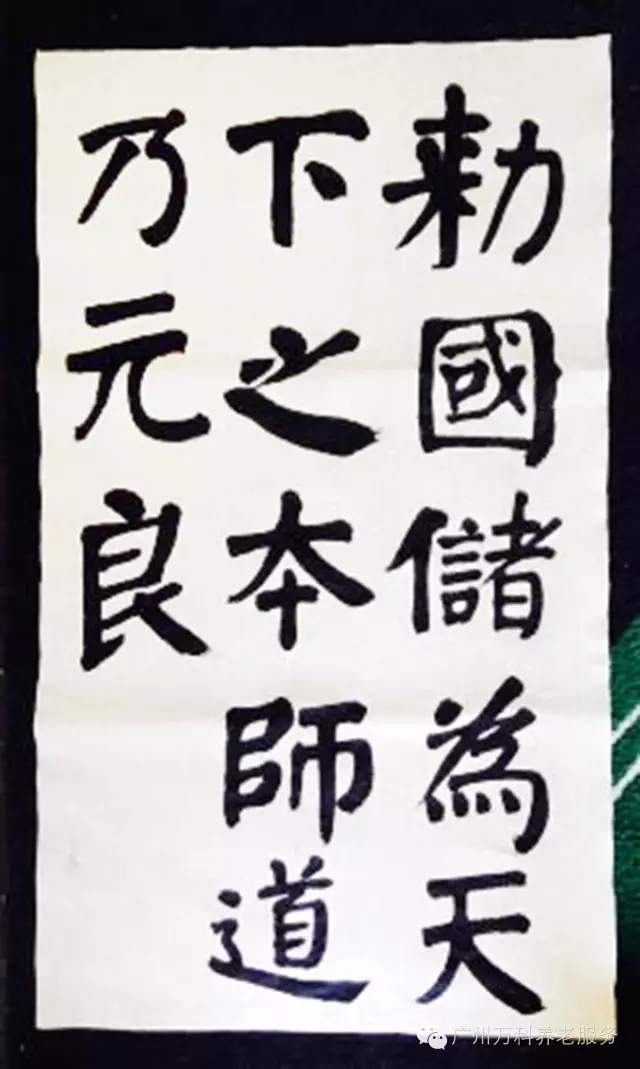 勑國儲為天
下之本師道
乃元良
广州万科养老服务